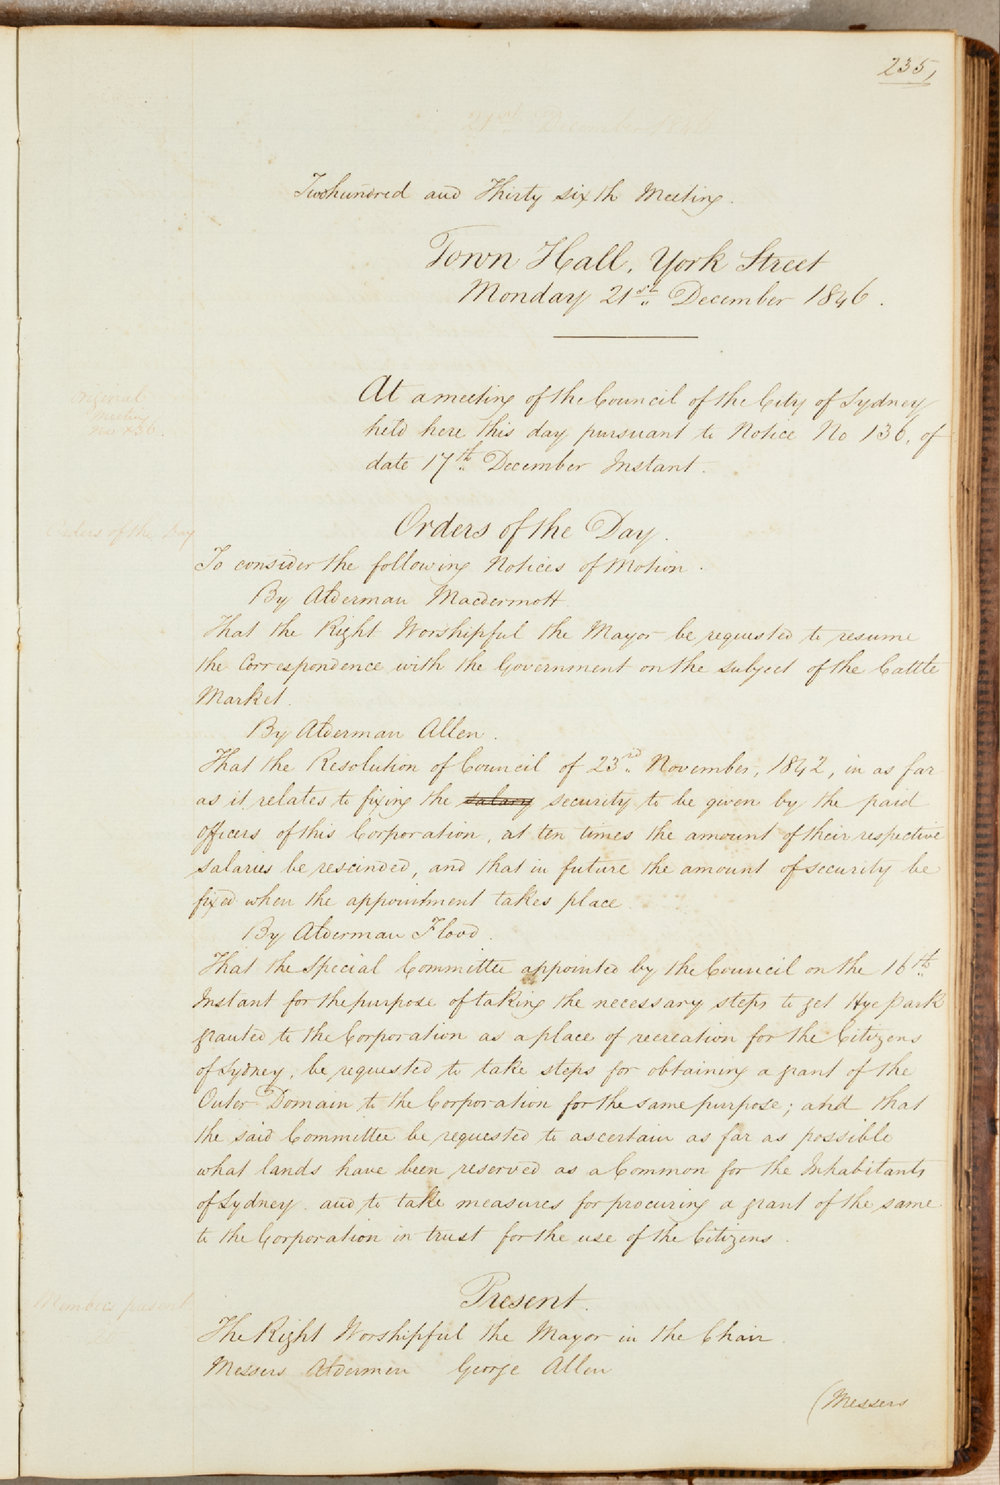 235,
Twohundred and Thirty sixth Meeting.
Town Hall, York Street
Monday 21st December 1846.
Original
Meeting
No 236.
At a meeting of the Council of the City of Sydney
held here this day pursuant to Notice No 136, of
date 17th December Instant.
Orders of the Day
Orders of the Day.
To consider the following Notices of Motion.
By Alderman Macdermott
That the Right Worshipful the Mayor be requested to resume
the Correspondence with the Government on the subject of the Cattle
Market.
By Alderman Allen.
That the Resolution of Council of 23rd November, 1842, in as far
as it relates to fixing the salary security to be given by the paid
officers of this Corporation, at ten times the amount of their respective
salaries be rescinded, and that in future the amount of security be
fixed when the appointment takes place
By Alderman Flood.
That the Special Committee appointed by the Council on the 16th
Instant for the purpose of taking the necessary steps to get Hye Park
granted to the Corporation as a place of recreation for the Citizens
of Sydney, be requested to take steps for obtaining a grant of the
Outer Domain to the Corporation for the same purpose; and that
the said Committee be requested to ascertain as far as possible
what lands have been reserved as a Common for the Inhabitants
of Sydney and to take measures for procuring a grant of the same
to the Corporation in trust for the use of the Citizens.
Members present
Present.
The Right Worshipful the Mayor in the Chair.
Messers Aldermen George Allen
(Messers